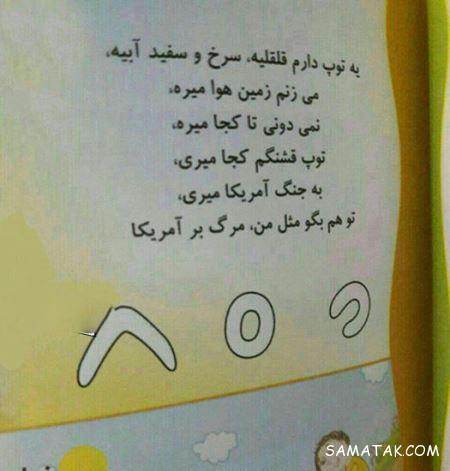 یه توپ دارم قلقلیه، سرخ و سفید آبیه،
می زنم زمین هوا میره،
نمی دونی تا کجا میره،
توپ قشنگم کجا میری،
به جنگ آمریکا میری،
تو هم بگو مثل من، مرگ بر آمریکا
SAMATAK.COM